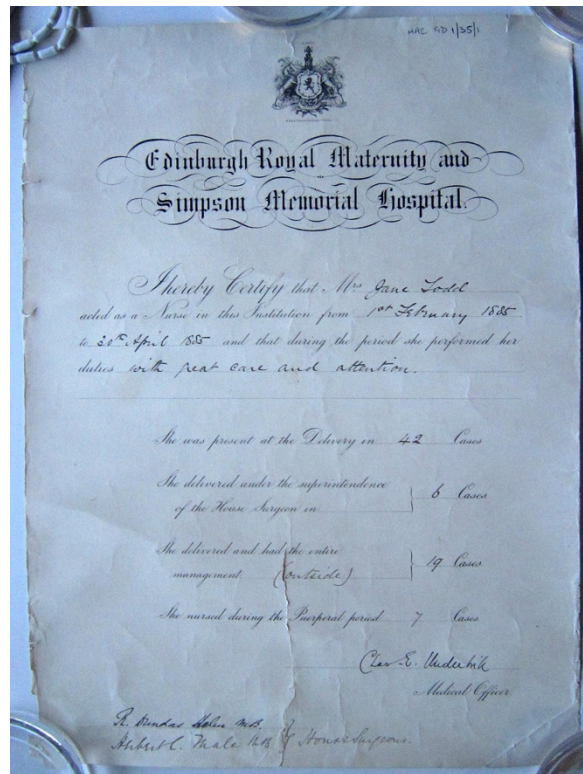 HAC GD 1/35/1
Edinburgh Royal Maternity and
Simpson Memorial Hospital.
I hereby Certify that Mrs Jane Todd
acted as a Nurse in this Institution from 1st February 1885
to 30th April 1885 and that during the period she performed her
duties with great care and attention.
She was present at the Delivery in 42 Cases
She delivered under the superintendence
of the House Surgeon in 6 Cases
She delivered and had the entire
management (outside) 19 Cases
She nursed during the Puerperal period 7 Cases
Chas. E. Underhill
Medical Officer
R. Dundas Helm M.B.
Herbert C. Male M.B. House Surgeons.